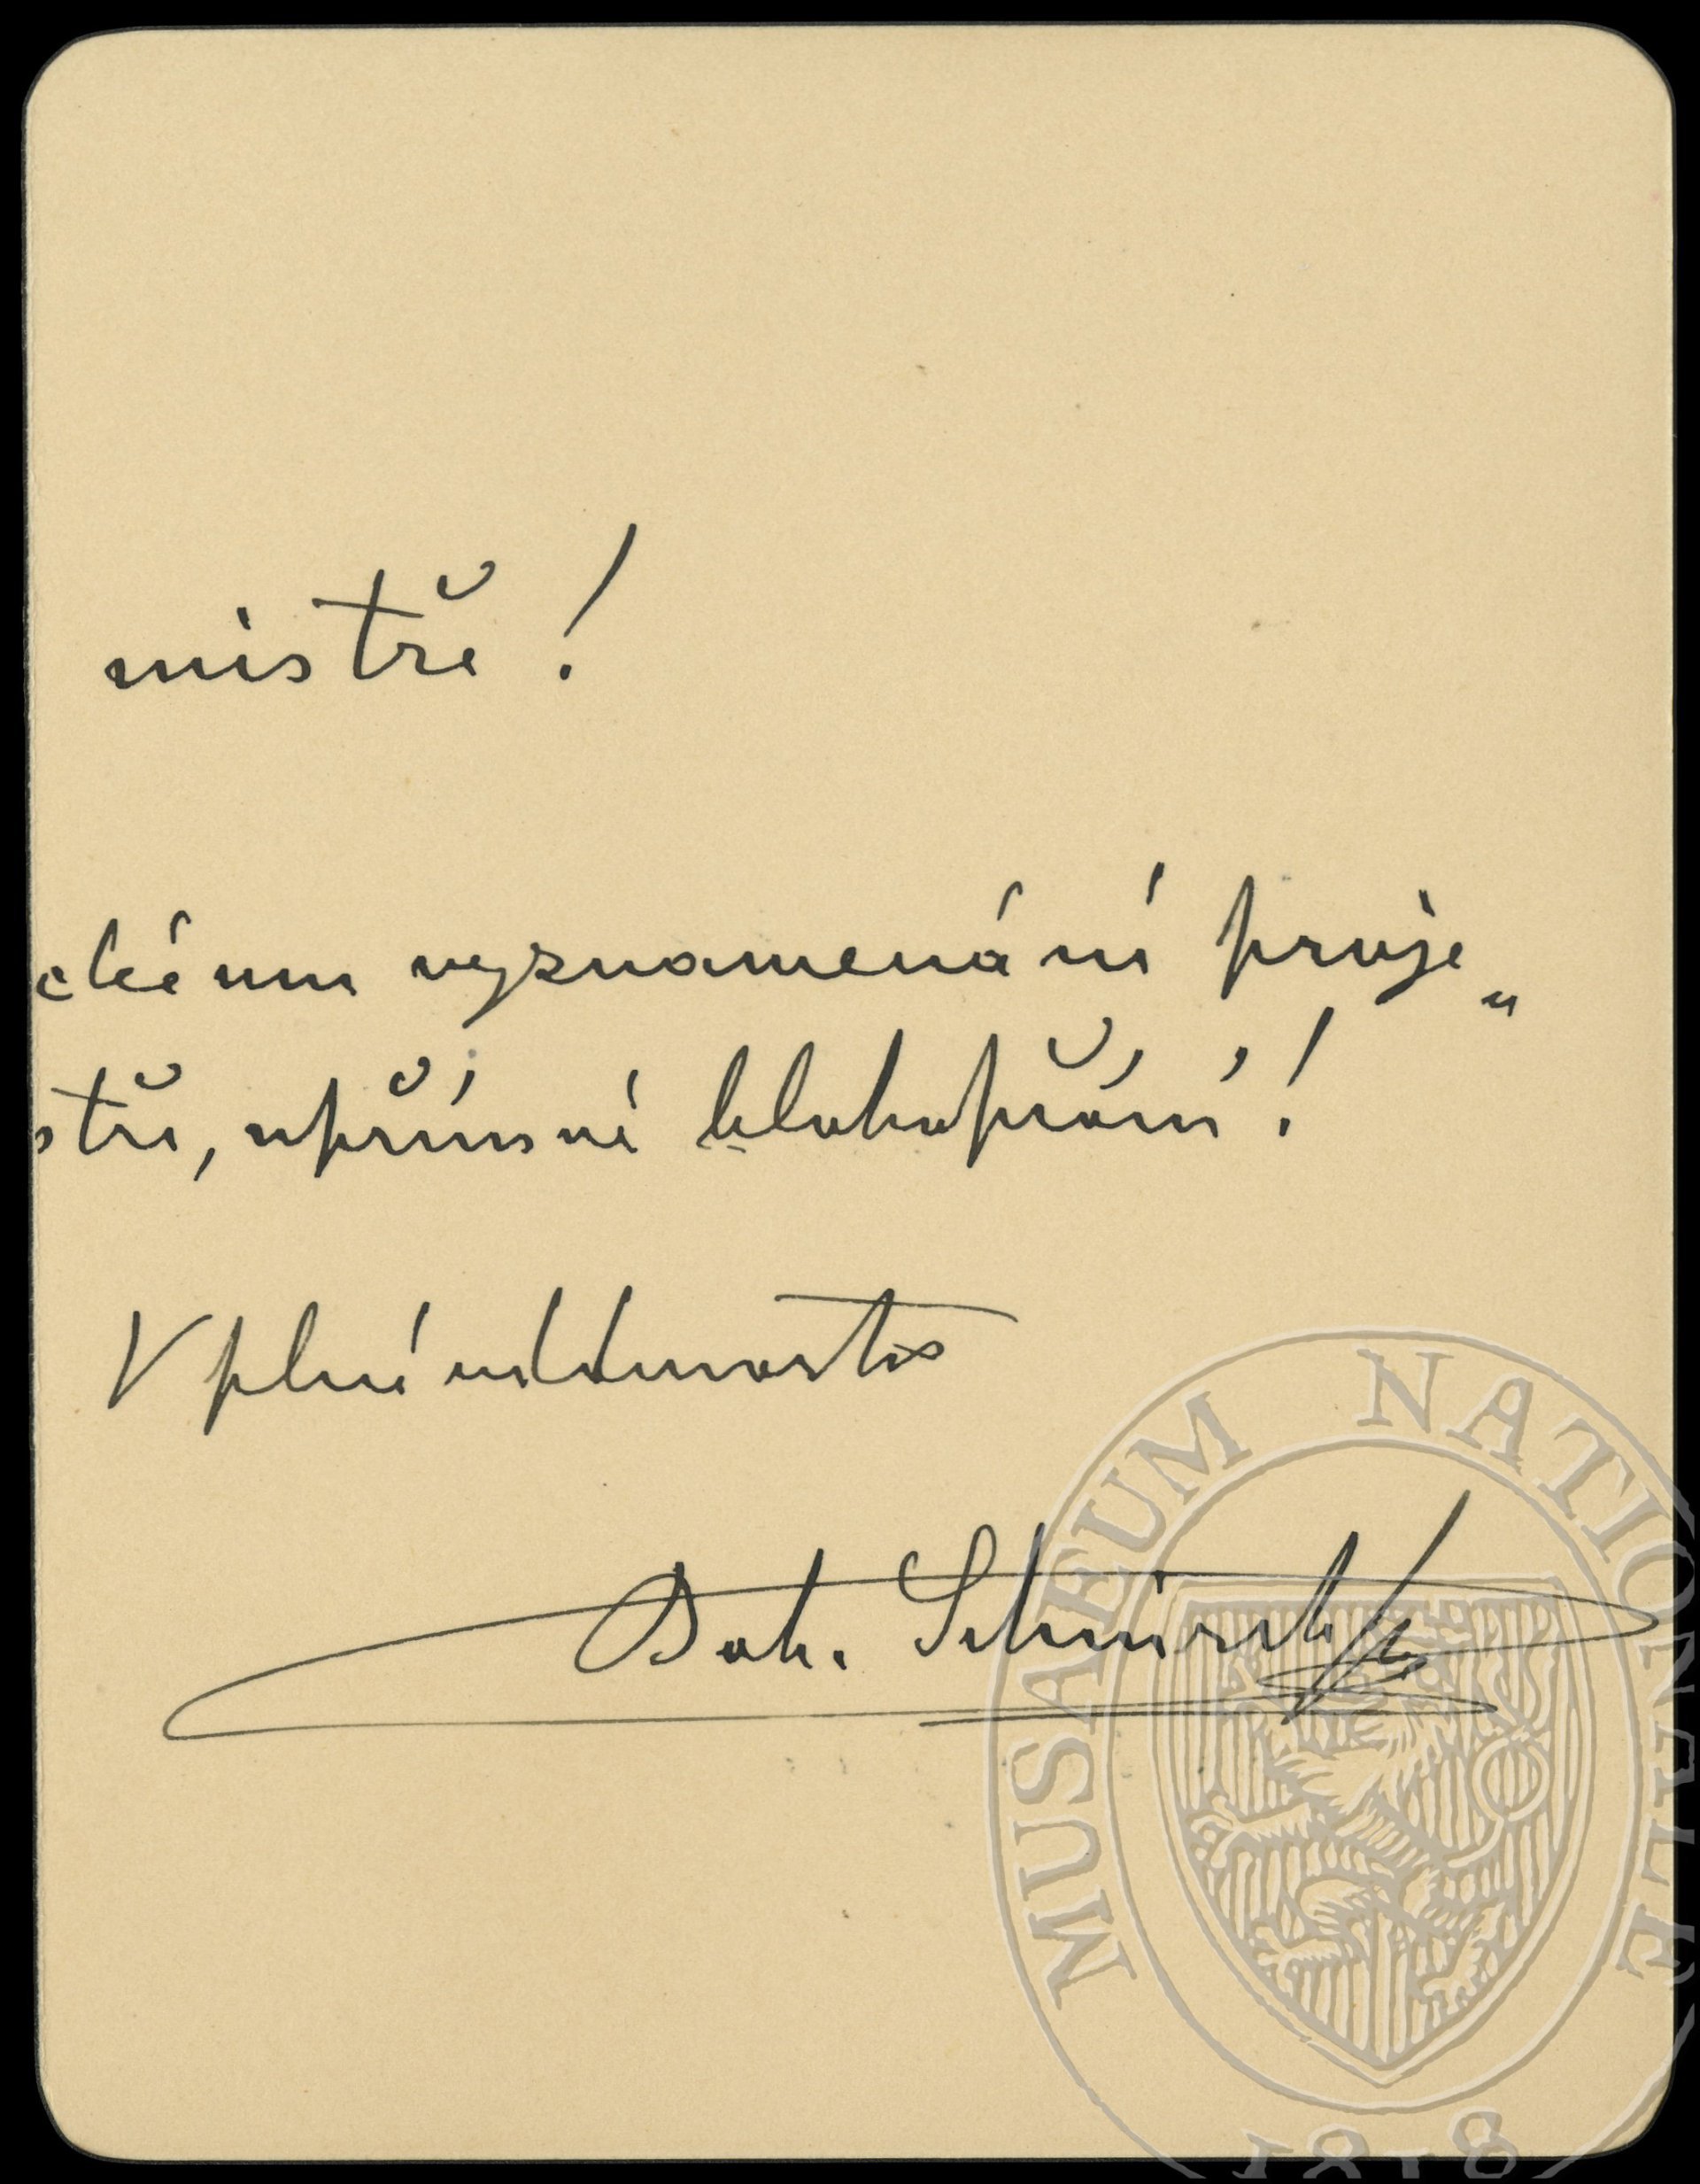 mistře!
ckému vyznamenání proje„
stře, upřímné blahopřání!
V plné oddanosti
Boh.
MUSAEUM NATIONALE
1818